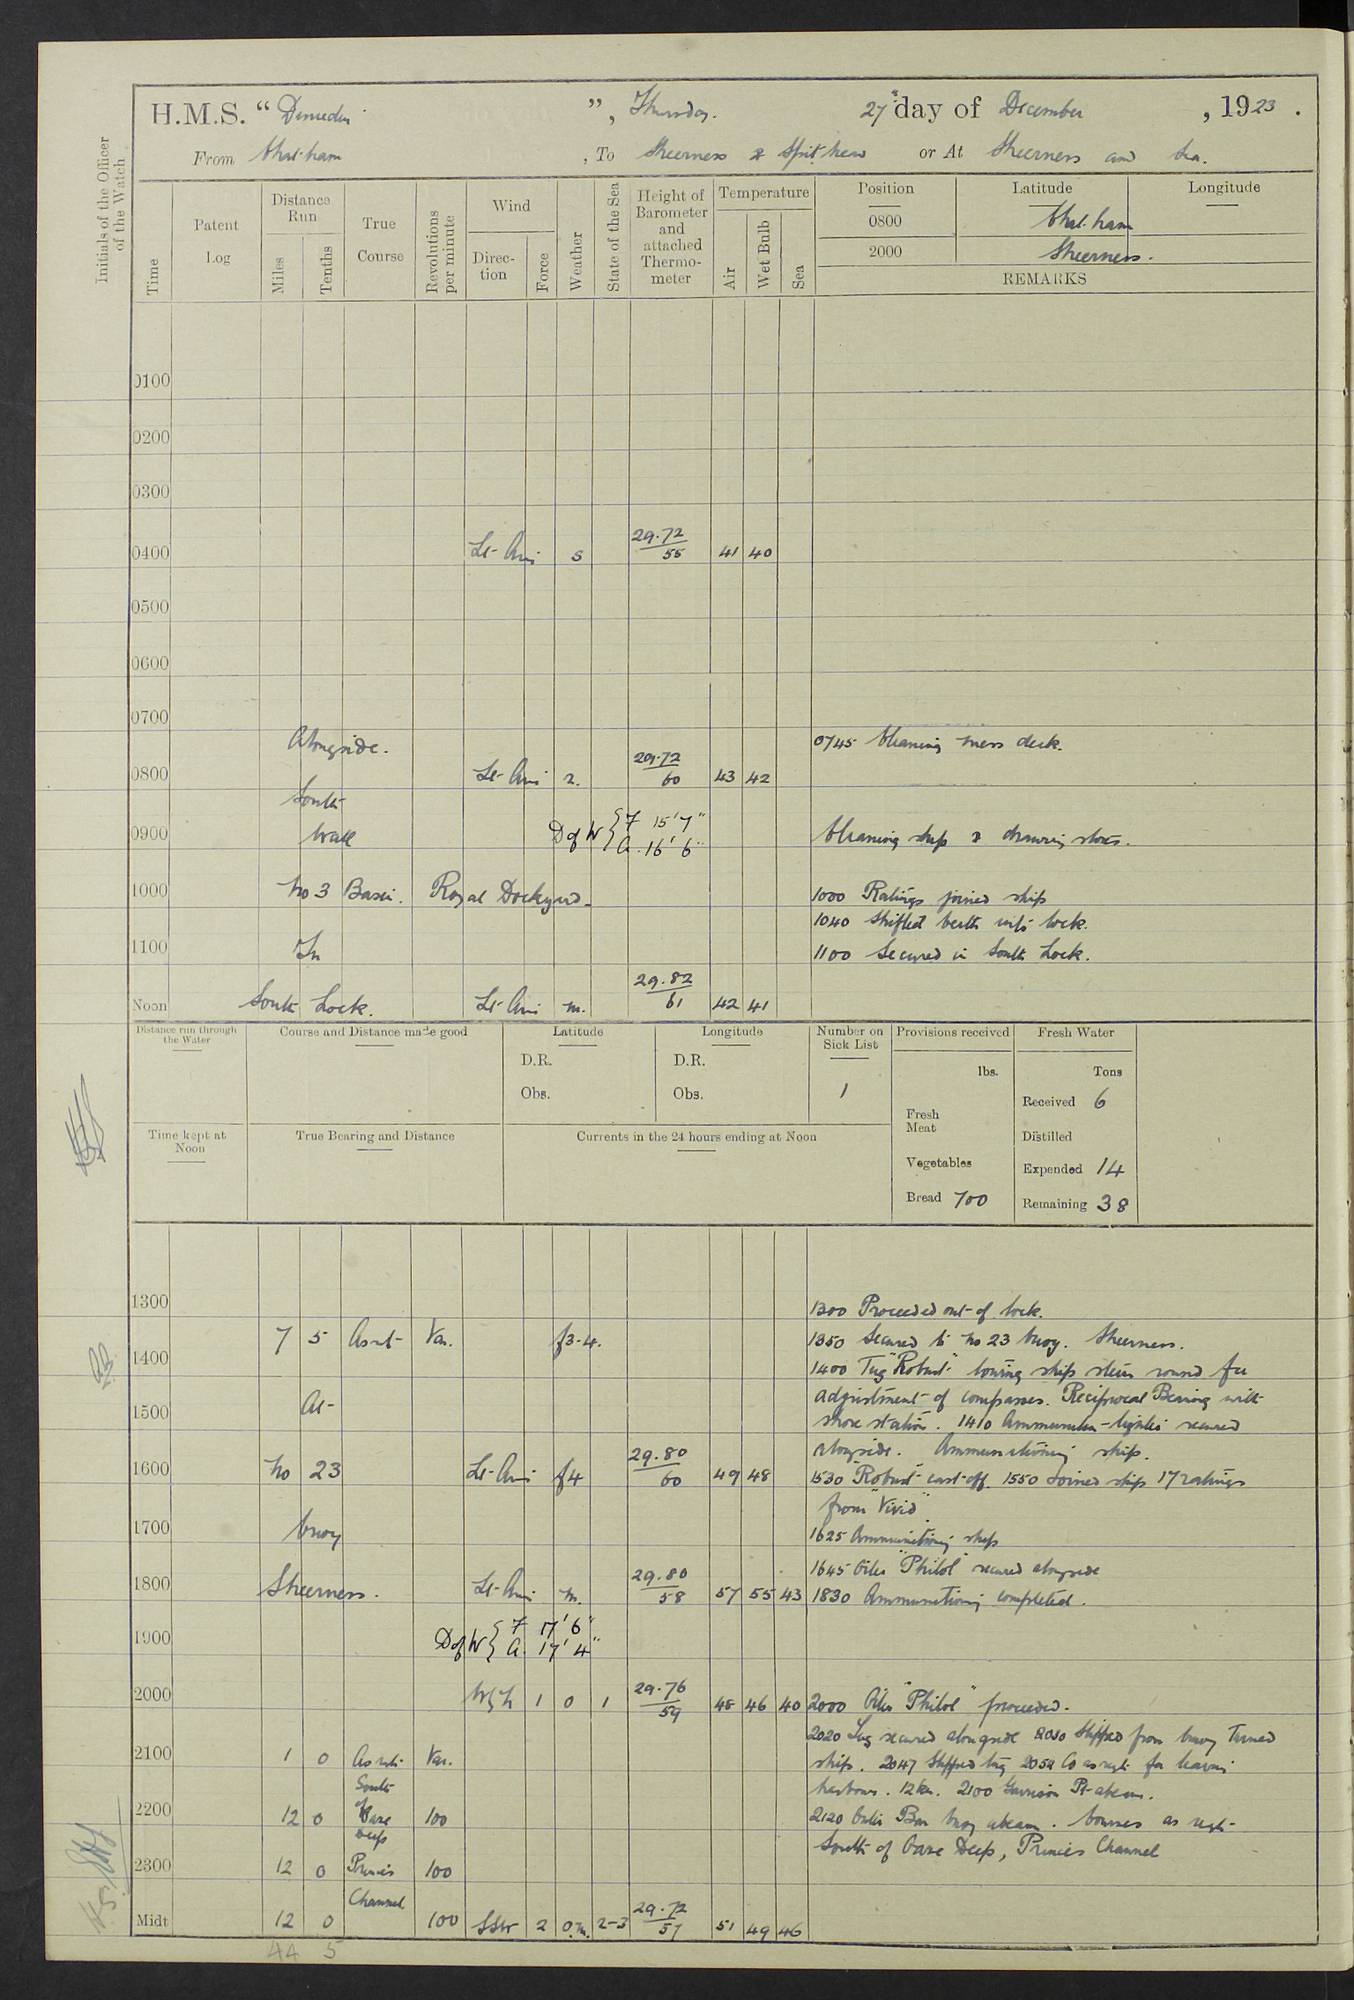 H.M.S. “ Dunedin ”, Thursday. 27th day of December, 1923.
From Chatham, To Sheerness & Spithead or At Sheerness and Sea.
Initials of the Officer of the Watch
Time
Patent Log
Distance Run
Miles
Tenths
True Course
Revolutions per minute
Wind
Direction
Force
Weather
State of the Sea
Height of Barometer and attached Thermometer
Temperature
Air
Wet Bulb
Sea
Position Latitude Longitude
0800 Chatham
2000 Sheerness.
REMARKS
0100
0200
0300
0400 Lt Airs s 29.72/55 41 40
0500
0600
0700
Alongside. 0745 Cleaning mess deck.
0800 Lt Airs 29.72/60 43 42
South
0900 Wall D of W { F 15' 7" A. 16' 6" Cleaning ship & drawing stores.
1000 No 3 Basin. Royal Dockyard. 1000 Ratings joined ship
1040 Shifted berth into lock.
1100 In 1100 Secured in South Lock.
Noon South Lock. Lt Airs m. 29.82/61 42 41
Distance run through the Water
Course and Distance made good
Latitude
D.R.
Obs.
Longitude
D.R.
Obs.
Number on Sick List
1
Provisions received
lbs.
Fresh Meat
Vegetables
Bread 700
Fresh Water
Tons
Received 6
Distilled
Expended 14
Remaining 38
Time kept at Noon
True Bearing and Distance
Currents in the 24 hours ending at Noon
1300 1300 Proceeded out of lock.
7 5 As req Var. f3-4. 1350 Secured to No 23 buoy. Sheerness.
1400 1400 Tug "Robust" towing ships stern round for
At adjustment of compasses. Reciprocal Bearing with
1500 shore station. 1410 Ammunition lighter secured
alongside. Ammunitioning ship.
1600 No 23 Lt Airs f4 29.80/60 49 48 1530 "Robust" cast off. 1550 Joined ship 17 ratings
from "Vivid"
1700 buoy 1625 Ammunitioning ship
1645 Oiler "Philol" secured alongside
1800 Sheerness. Lt Airs m. 29.80/58 57 55 43 1830 Ammunitioning completed.
1900 D of W { F 17' 6" A. 17' 4"
2000 1 0 1 29.76/59 48 46 40 2000 Oiler "Philol" proceeded.
2020 Tug secured alongside 2030 Slipped from buoy Turned
2100 1 0 As req Var. ship. 2047 Slipped tug 2052 Co as req. for leaving
South harbour. 12 kn. 2100 Garrison Pt abeam.
2200 12 0 of Oaze Deep 100 2120 Outer Bar buoy abeam. Courses as req.
South of Oaze Deep, Princes Channel
2300 12 0 Princes 100
Channel
Midt 12 0 100 SSW 2 o.m. 2-3 29.72/57 51 49 46
44 5